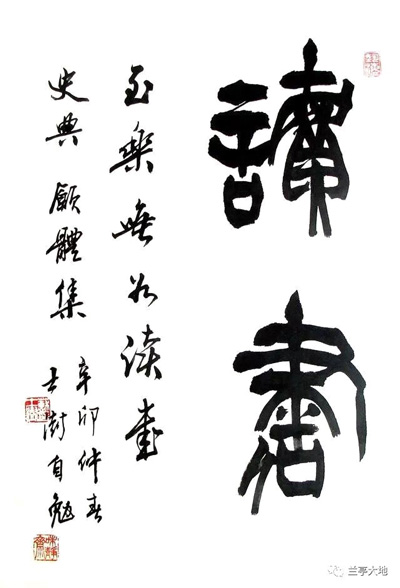 讀書
至樂無如读書
史典 顧體集
辛卯仲春
士澍自勉
兰亭大地